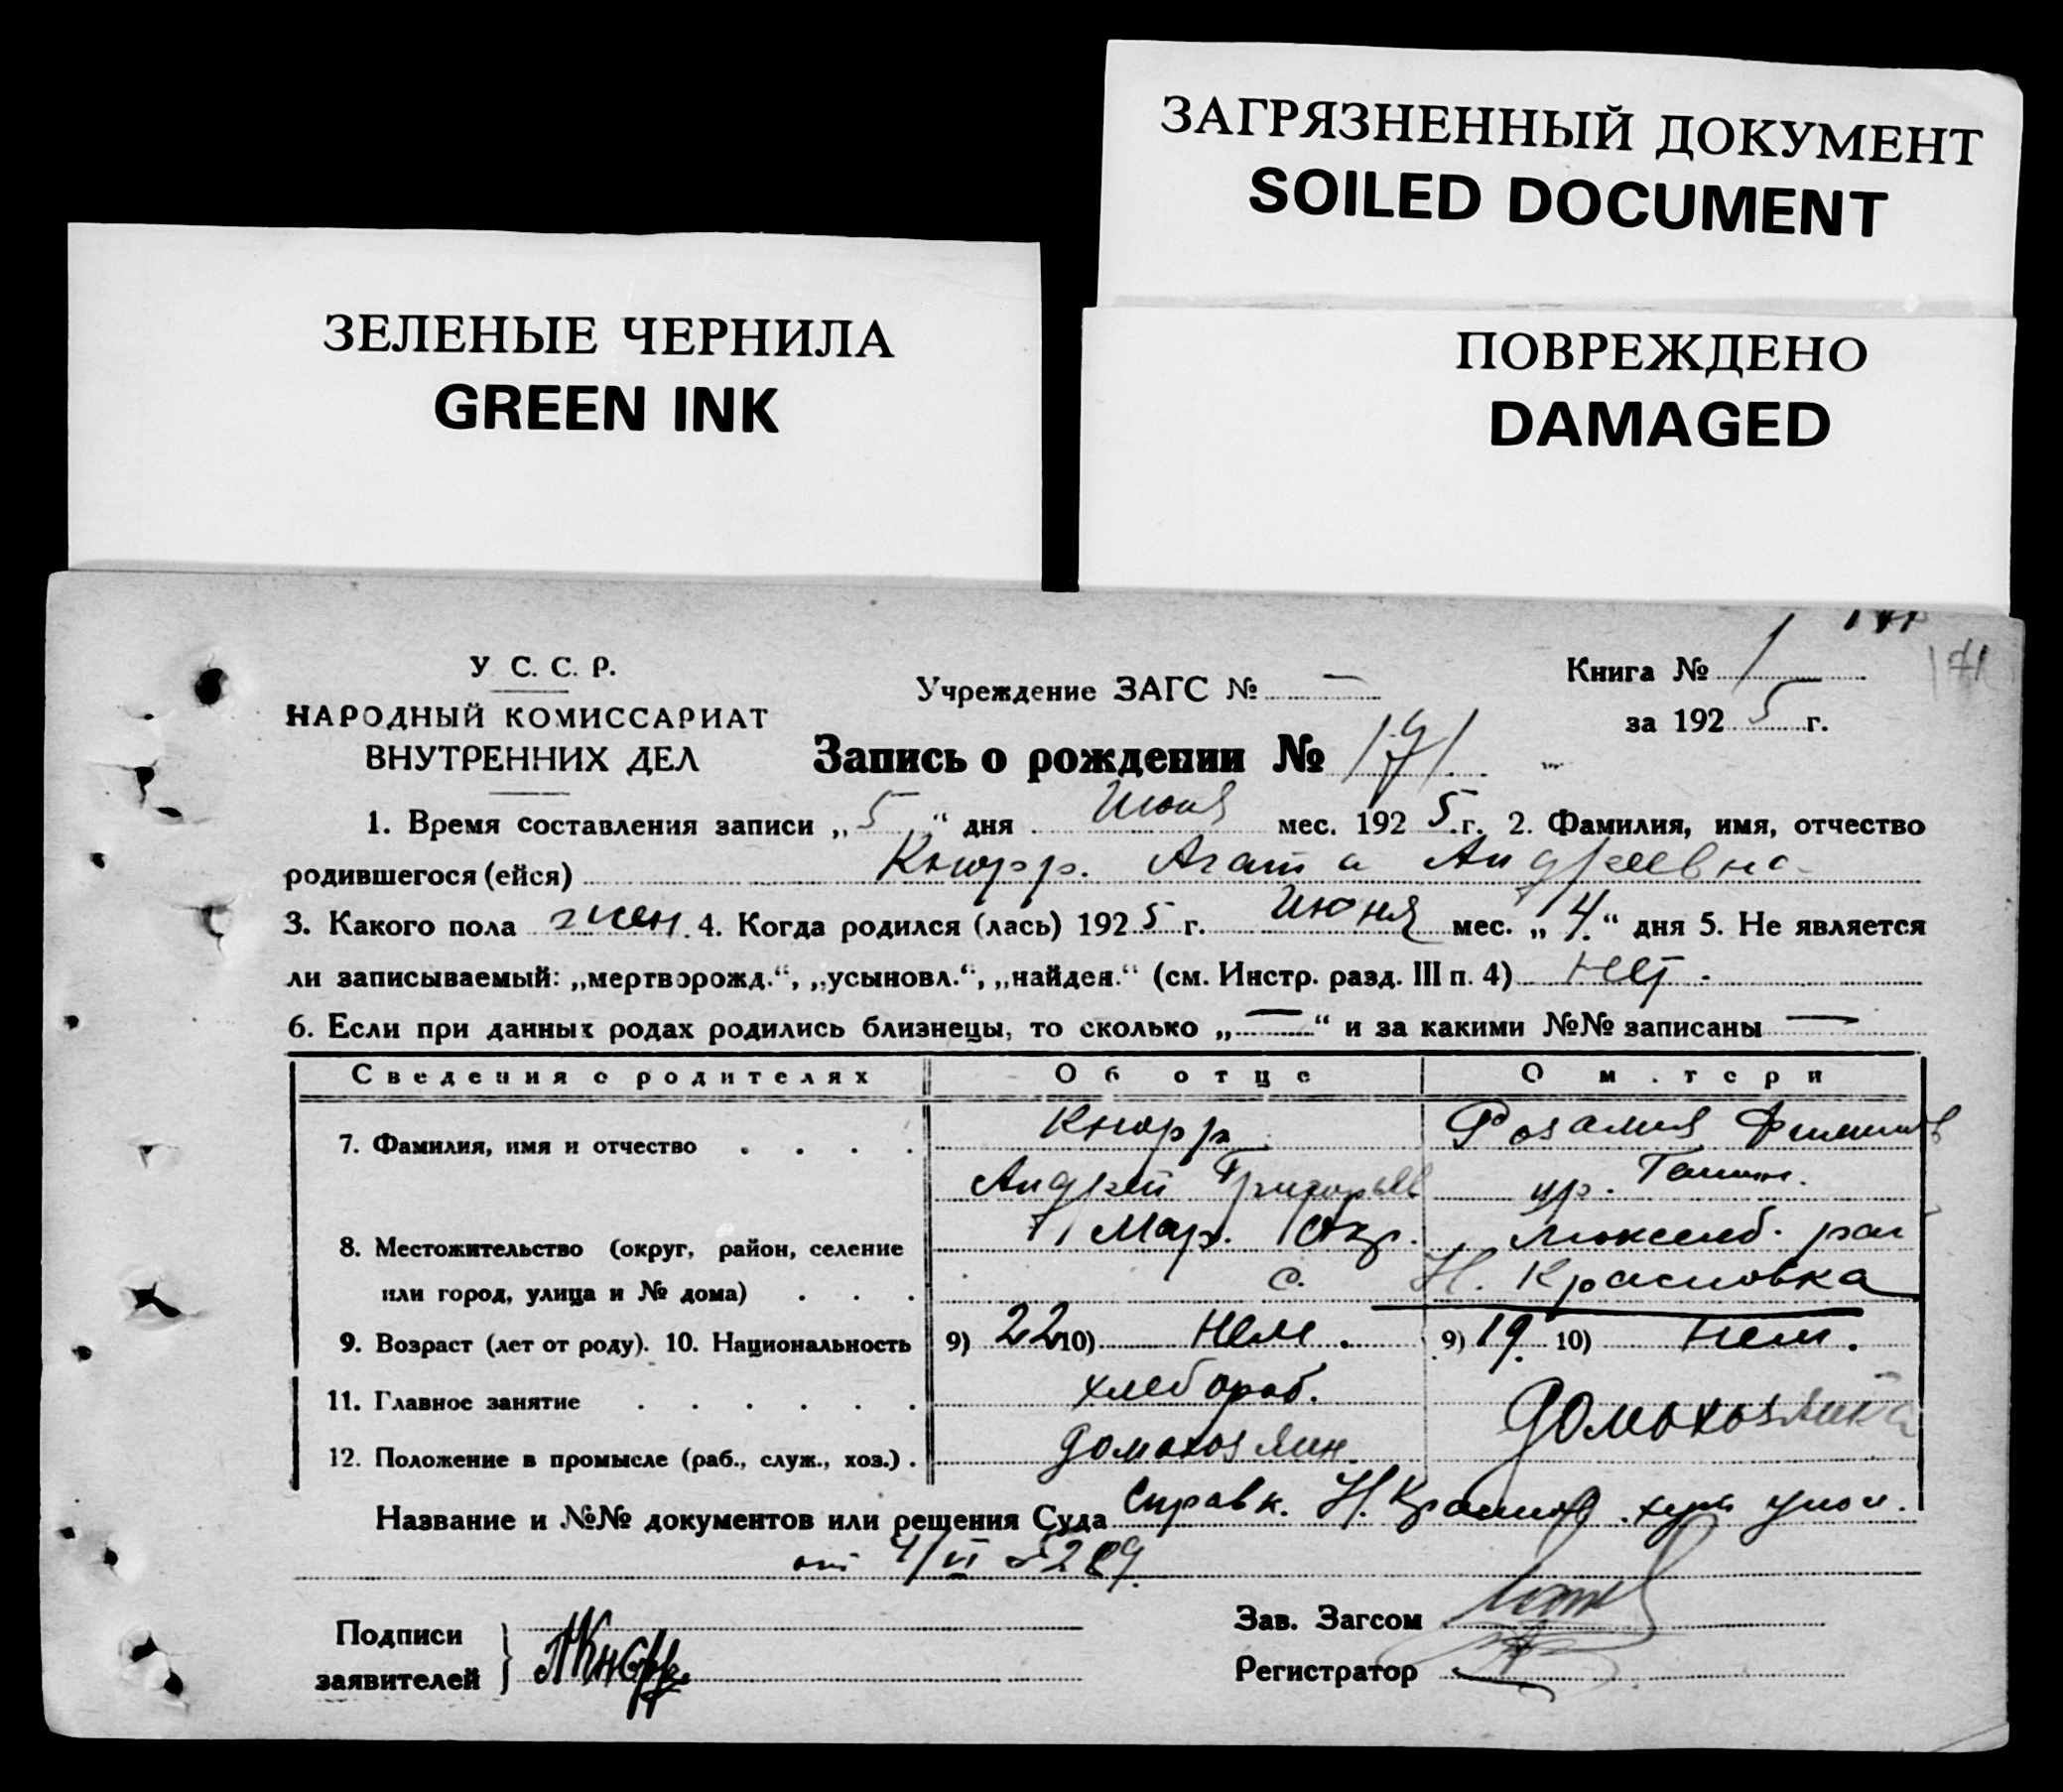 ЗАГРЯЗНЕННЫЙ ДОКУМЕНТ
SOILED DOCUMENT
ЗЕЛЕНЫЕ ЧЕРНИЛА
GREEN INK
ПОВРЕЖДЕНО
DAMAGED
171
У. С. С. Р.
НАРОДНЫЙ КОМИССАРИАТ
ВНУТРЕННИХ ДЕЛ
Учреждение ЗАГС № —
Книга № 1
за 1925 г.
Запись о рождении № 171
1. Время составления записи „5“ дня Июня мес. 1925 г. 2. Фамилия, имя, отчество
родившегося (ейся) Кнорр. Агата Андреевна
3. Какого пола жен. 4. Когда родился (лась) 1925 г. Июня мес. „4.“ дня 5. Не является
ли записываемый: „мертворожд.“, „усыновл.“, „найден.“ (см. Инстр. разд. III п. 4) нет.
6. Если при данных родах родились близнецы, то сколько „—“ и за какими №№ записаны —
Сведения о родителях Об отце О матери
7. Фамилия, имя и отчество . . . . Кнорр Розалия Филипов
Андрей Григорьев ур.
8. Местожительство (округ, район, селение Мар. Окр. Люксемб. рай
или город, улица и № дома) . . . с. Н. Красновка
9. Возраст (лет от роду). 10. Национальность 9) 22 10) Нем. 9) 19. 10) Нем.
11. Главное занятие . . . . . . хлебораб. домохозяйка
12. Положение в промысле (раб., служ., хоз.) . домохозяин
Название и №№ документов или решения Суда Справк. Н. Краснов. упол.
от 4/VI 289
Подписи
заявителей } А Кнорр
Зав. Загсом
Регистратор